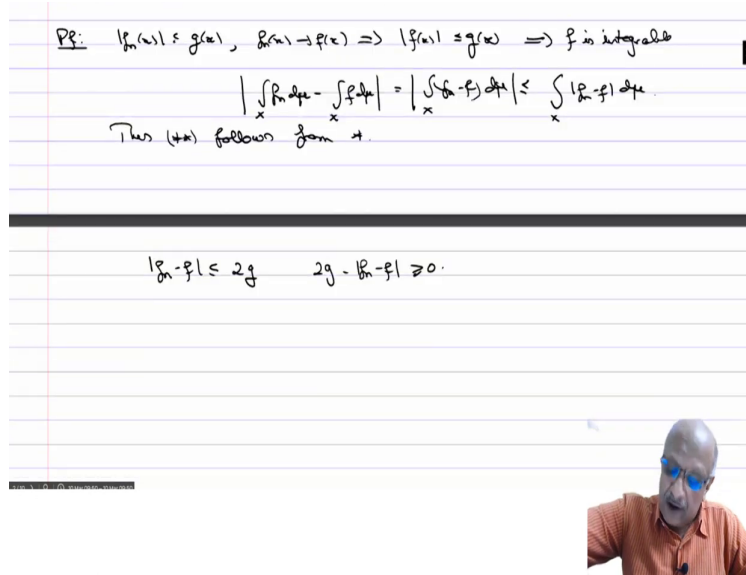 Pf: |fn(x)| ≤ g(x), fn(x) → f(x) => |f(x)| ≤ g(x) => f is integrable
| ∫_X fn dμ - ∫_X f dμ | = | ∫_X (fn - f) dμ | ≤ ∫_X |fn - f| dμ.
Thus (**) follows from *.
|fn - f| ≤ 2g 2g - |fn - f| ≥ 0.